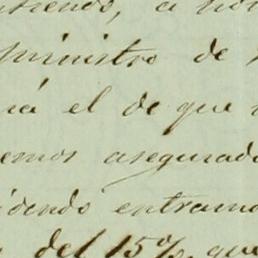 ministro de
el de que
emos asegurad
idendo entram
del 15 %, que